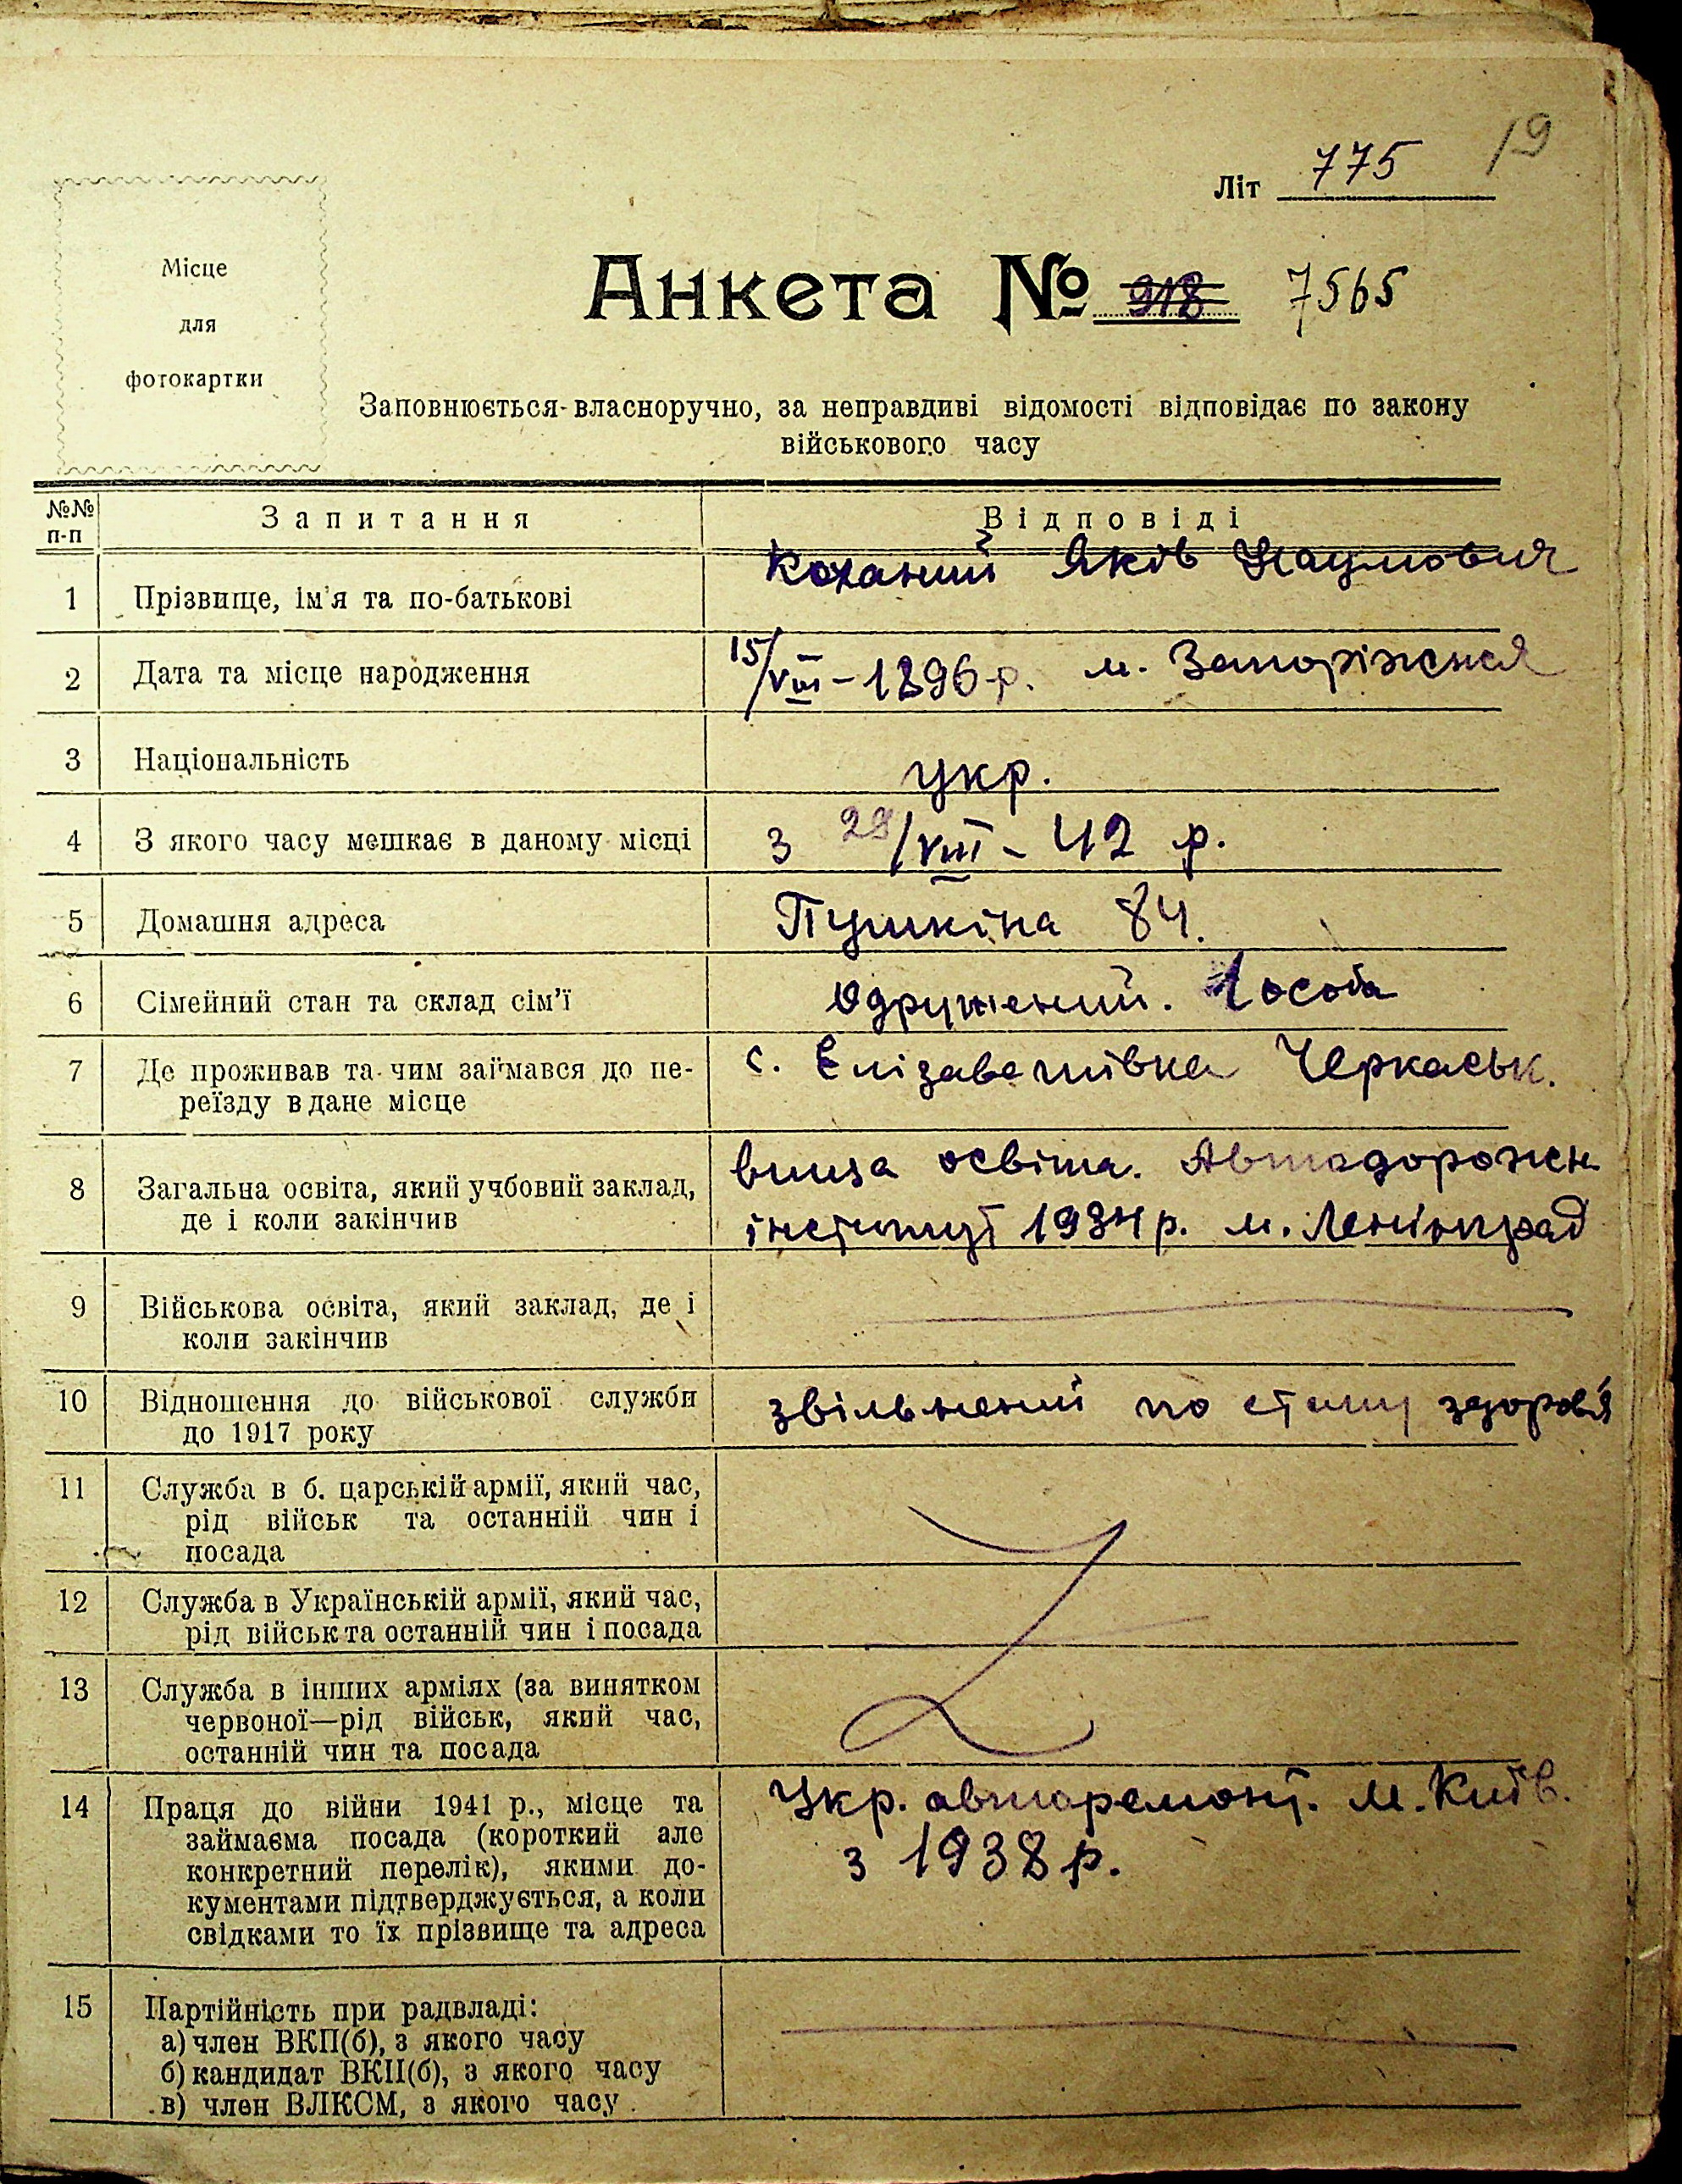 19
Літ 775
Місце
для
фотокартки
Анкета № 918 7565
Заповнюється власноручно, за неправдиві відомості відповідає по закону
військового часу
№№ п-п
Запитання
Відповіді
1 Прізвище, ім'я та по-батькові
Коханий Яків Наумович
2 Дата та місце народження
15/VIII – 1896 р. м. Запоріжжя
3 Національність
укр.
4 З якого часу мешкає в даному місці
з 29/VIII – 42 р.
5 Домашня адреса
Пушкіна 84.
6 Сімейний стан та склад сім'ї
Одружений. 1 особа
7 Де проживав та чим займався до пе-
реїзду в дане місце
с. Єлізаветівка Черкаськ.
8 Загальна освіта, який учбовий заклад,
де і коли закінчив
вища освіта. Автодорожн
інститут 1934 р. м. Ленінград
9 Військова освіта, який заклад, де і
коли закінчив
10 Відношення до військової служби
до 1917 року
звільнений по стану здоров'я
11 Служба в б. царській армії, який час,
рід військ та останній чин і
посада
12 Служба в Українській армії, який час,
рід військ та останній чин і посада
13 Служба в інших арміях (за винятком
червоної—рід військ, який час,
останній чин та посада
14 Праця до війни 1941 р., місце та
займаєма посада (короткий але
конкретний перелік), якими до-
кументами підтверджується, а коли
свідками то їх прізвище та адреса
Укр. авторемонт. м. Київ.
з 1938 р.
15 Партійність при радвладі:
а) член ВКП(б), з якого часу
б) кандидат ВКП(б), з якого часу
в) член ВЛКСМ, з якого часу